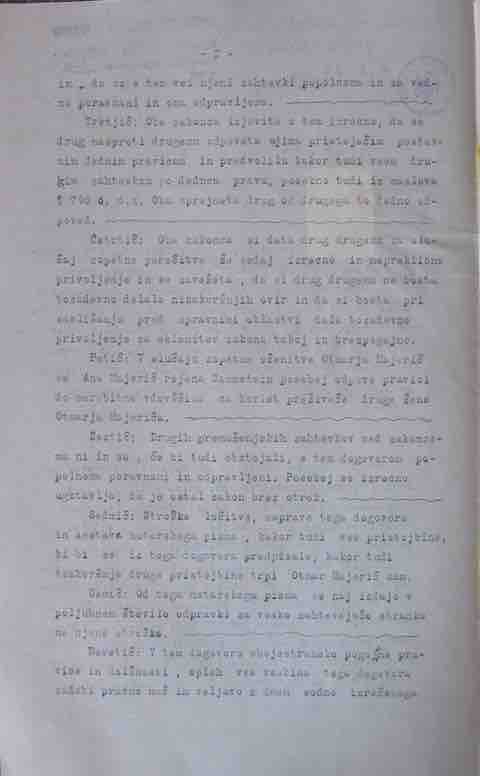 - 2 -
in , da so s tem vsi njeni zahtevki popolnoma in za ved-
no poravnani in ona odpravljena.
Tretjič: Oba zakonca izjavita s tem izrecno, da se
drug nasproti drugemu odpovesta njima pristoječim postav-
nim dednim pravicam in predvolilu kakor tudi vsem dru-
gim zahtevkom po dednem pravu, posebno tudi iz naslova
§ 796 o. d.z. Oba sprejmeta drug od drugega to dedno od-
poved.
Četrtič: Oba zakonca si data drug drugemu za slu-
čaj zopetne poročitve že sedaj izrecno in nepreklicno
privoljenje in se zavežeta , da si drug drugemu ne bosta
tozadevno delala nikakoršnjih ovir in da si bosta pri
zaslišanju pred upravnimi oblastvi dala tozadevno
privoljenje za sklenitev zakona takoj in brezpogojno.
Petič: V slučaju zopetne oženitve Otmarja Majerič
se Ana Majerič rojena posebej odpove pravici
do morebitne vdovščine na korist preživeče druge žene
Otmarja Majeriča.
Šestič: Drugih premoženjskih zahtevkov med zakonce-
ma ni in so , če bi tudi obstojali, s tem dogovorom po-
polnoma poravnani in odpravljeni. Posebej se izrecno
ugotavlja, da je ostal zakon brez otrok.
Sedmič: Stroške ločitve, naprave tega dogovora
in sestave notarskega pisma , kakor tudi vse pristojbine,
ki bi se iz tega dogovora predpisale, kakor tudi
tozadevne druge pristojbine trpi Otmar Majerič sam.
Osmič: Od tega notarskega pisma se naj izdajo v
poljubnem število odpravki za vsako zahtevajočo stranko
na njene stroške.
Devetič: V tem dogovoru obojestransko pogojne pra-
vice in dolžnosti , sploh vsa vsebina tega dogovora
zadobi pravno moč in veljavo z dnem sodno izrečenega